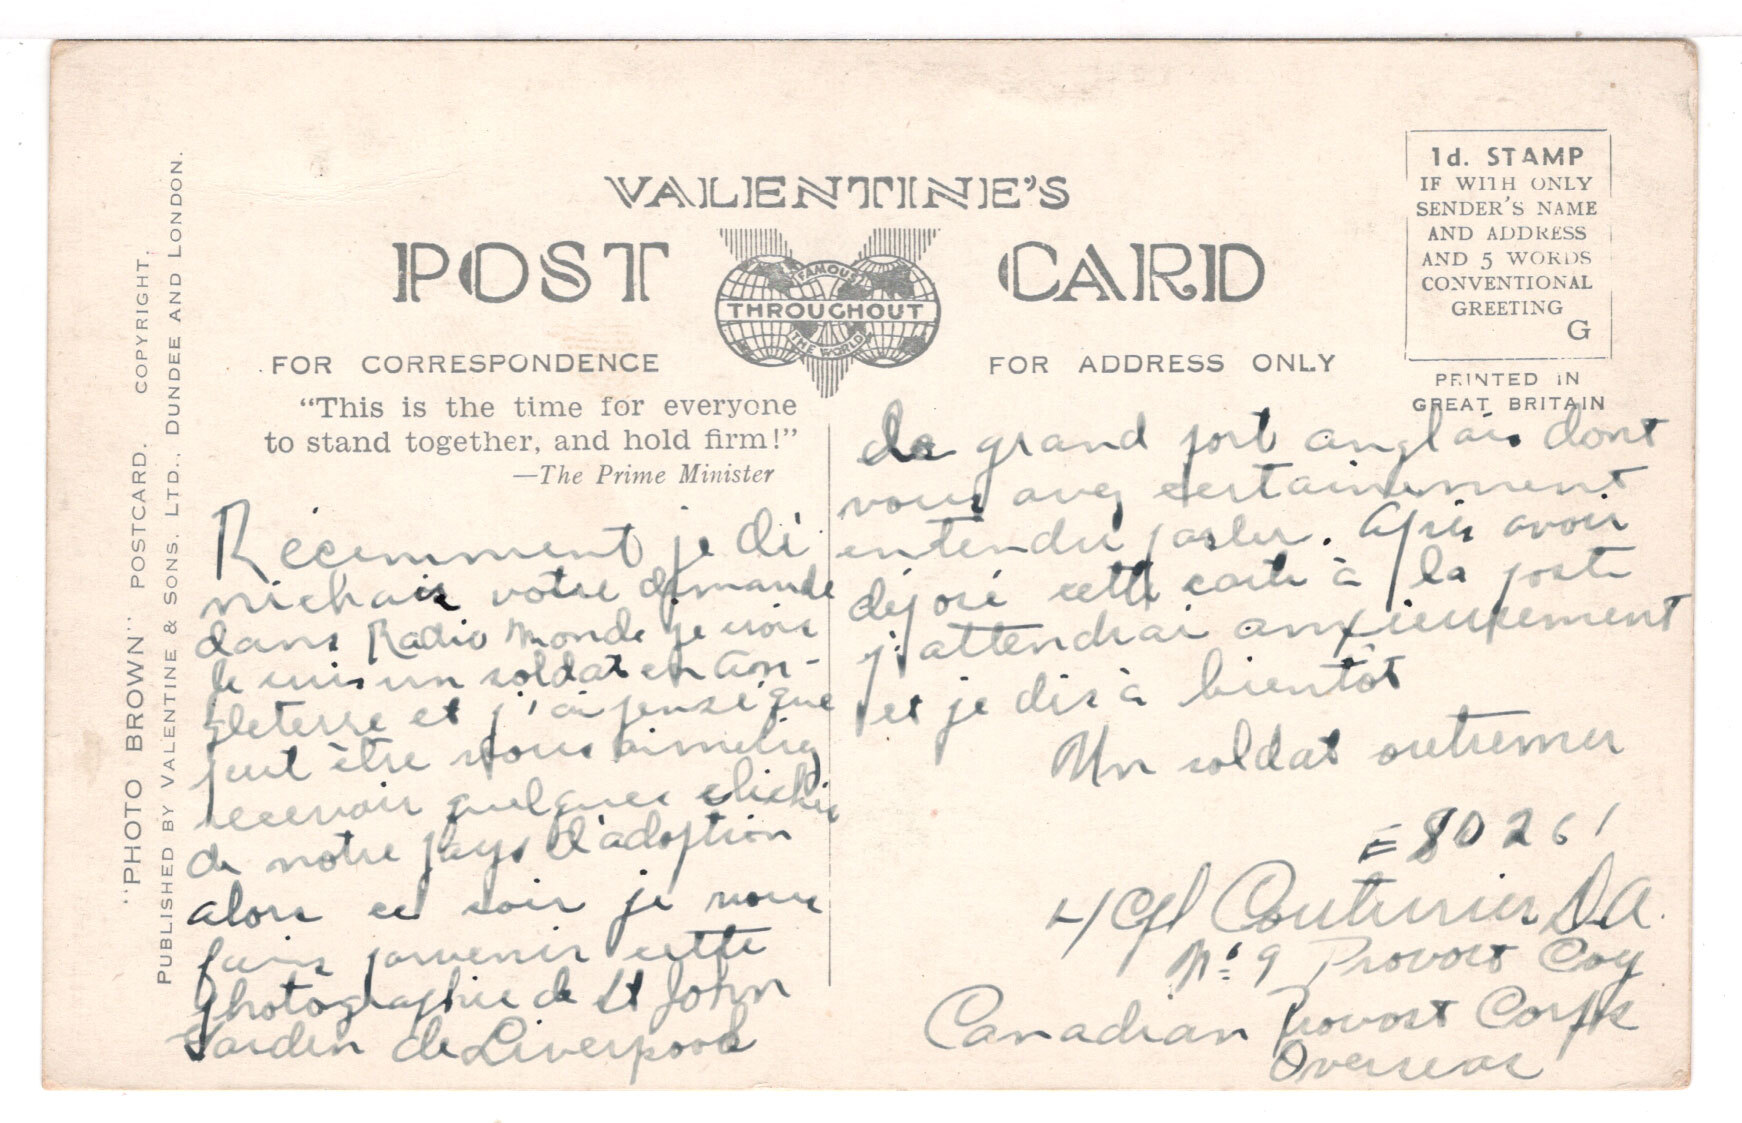 VALENTINE'S
POST CARD
FAMOUS
THROUGHOUT
THE WORLD
FOR CORRESPONDENCE
FOR ADDRESS ONLY
1d. STAMP
IF WITH ONLY
SENDER'S NAME
AND ADDRESS
AND 5 WORDS
CONVENTIONAL
GREETING
G
PRINTED IN
GREAT BRITAIN
"PHOTO BROWN" POSTCARD. COPYRIGHT.
PUBLISHED BY VALENTINE & SONS. LTD., DUNDEE AND LONDON.
"This is the time for everyone
to stand together, and hold firm!"
—The Prime Minister
Récemment je dé
nichais votre demande
dans Radio Monde je
suis un soldat en An-
gleterre et j'ai pensé que
peut être vous aimeriez
recevoir quelques clichés
de notre pays d'adoption
alors ce soir je vous
fais parvenir cette
photographie de St John
Garden de Liverpool
de grand port anglais dont
vous avez certainement
entendu parler. Après avoir
déposé cette carte à la poste
j'attendrai anxieusement
et je dis à bientôt
Un soldat outremer
E 80261
L/Cpl Couturier D.A.
No 9 Provost Coy
Canadian Provost Corps
Overseas